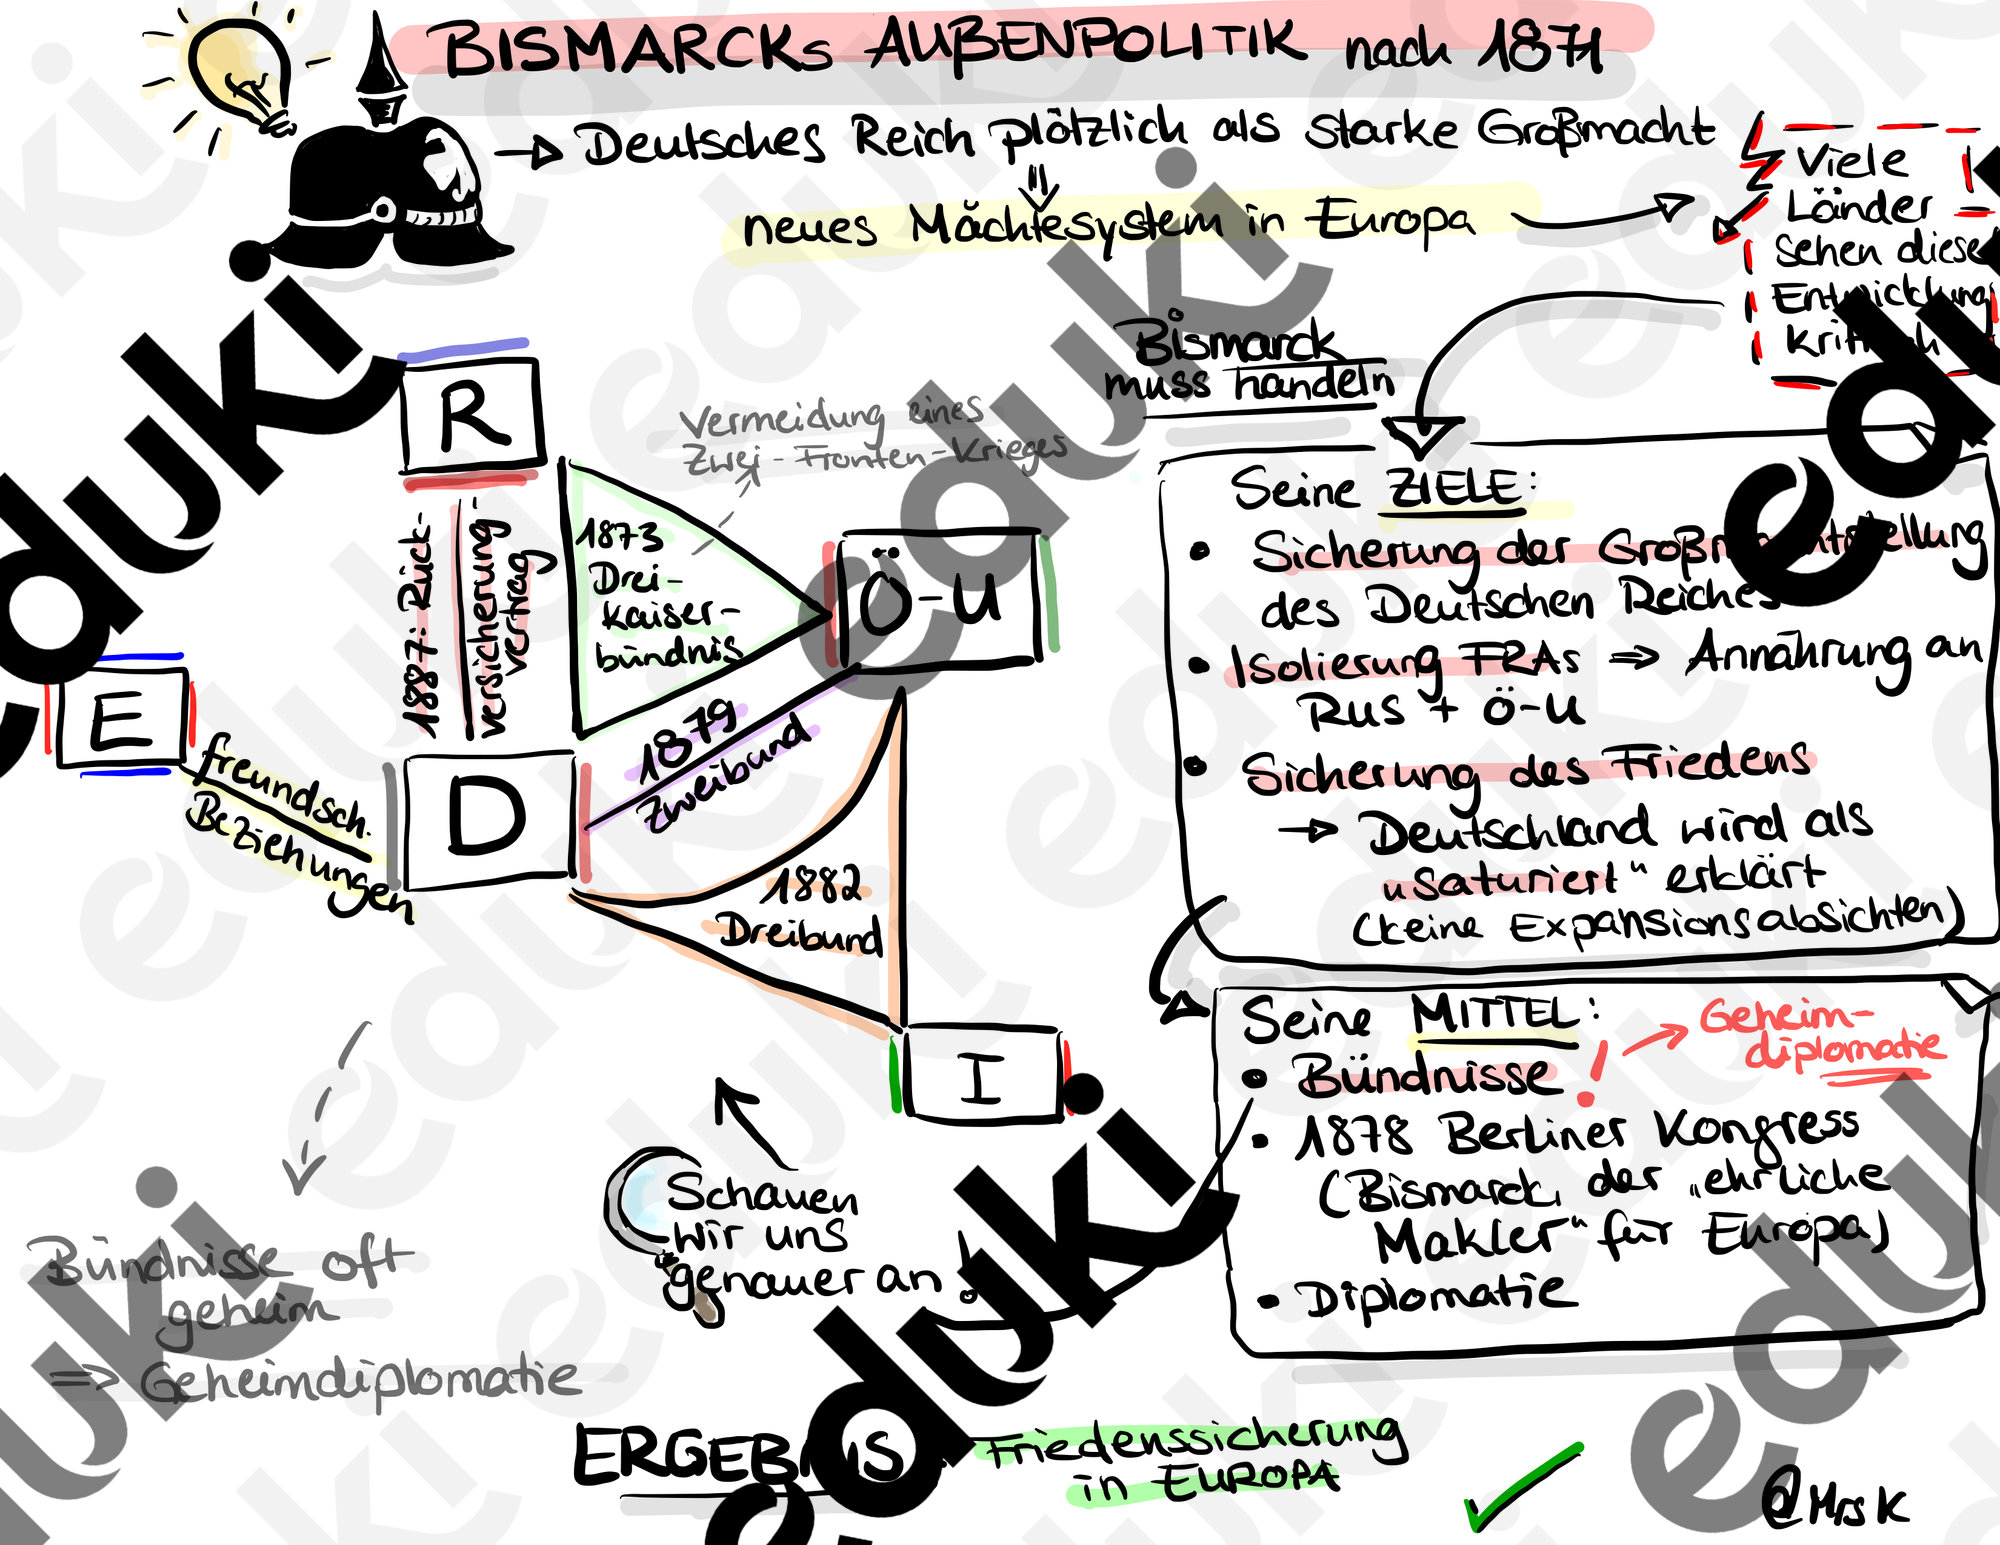 BISMARCKs AUßENPOLITIK nach 1871
→ Deutsches Reich plötzlich als starke Großmacht
⇓
neues Mächtesystem in Europa →
Viele
Länder
sehen diese
Entwicklung
kritisch
Bismarck
muss handeln
R
Vermeidung eines
Zwei-Fronten-Krieges
1873
Drei-
kaiser-
bündnis
1887: Rück-
versicherung-
vertrag
Ö-U
E
freundsch.
Beziehungen
D
1879
Zweibund
1882
Dreibund
I
Seine ZIELE:
• Sicherung der Großmachtstellung
des Deutschen Reiches
• Isolierung FRAs ⇒ Annährung an
RUS + Ö-U
• Sicherung des Friedens
→ Deutschland wird als
„saturiert“ erklärt
(keine Expansionsabsichten)
Seine MITTEL:
• Bündnisse ! → Geheim-
diplomatie
• 1878 Berliner Kongress
(Bismarck, der „ehrliche
Makler“ für Europa)
• Diplomatie
Schauen
wir uns
genauer an!
Bündnisse oft
geheim
⇒ Geheimdiplomatie
ERGEBNIS
Friedenssicherung
in EUROPA
@MrsK
eduki
eduki
eduki
eduki
eduki
eduki